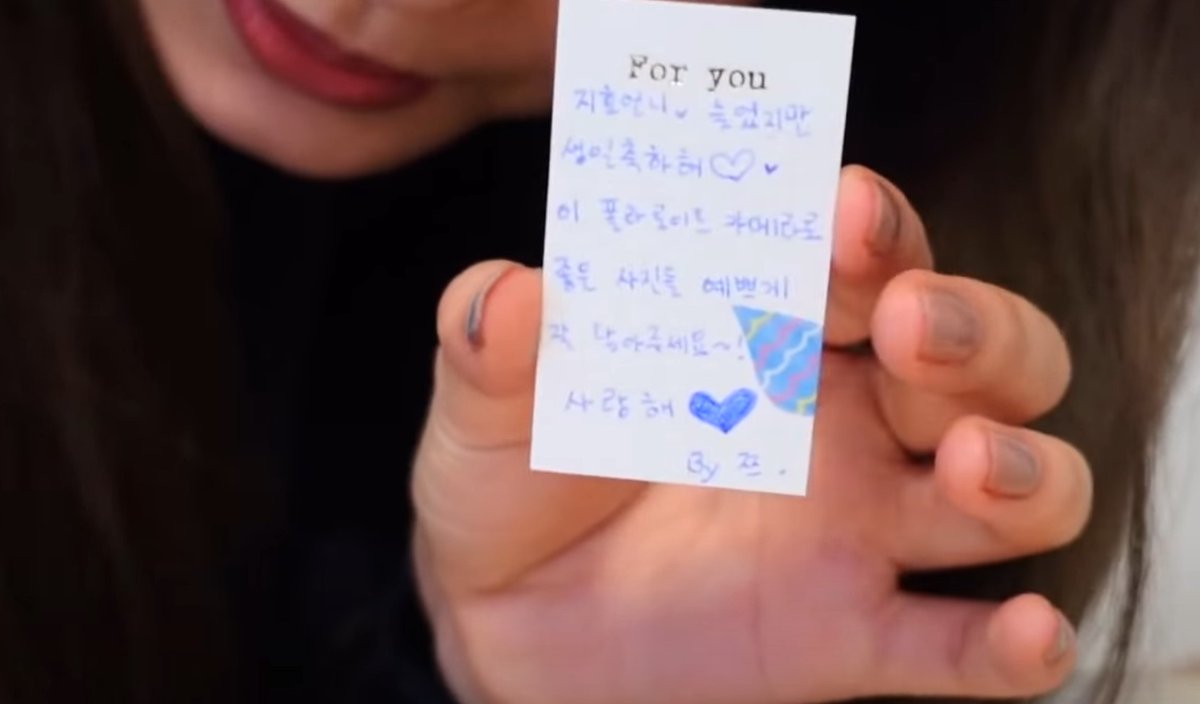 For you
지효언니 늦었지만
생일축하해
이 폴라로이드 카메라로
좋은 사진들 예쁘게
꼭 담아주세요~!
사랑해
By 쯔.